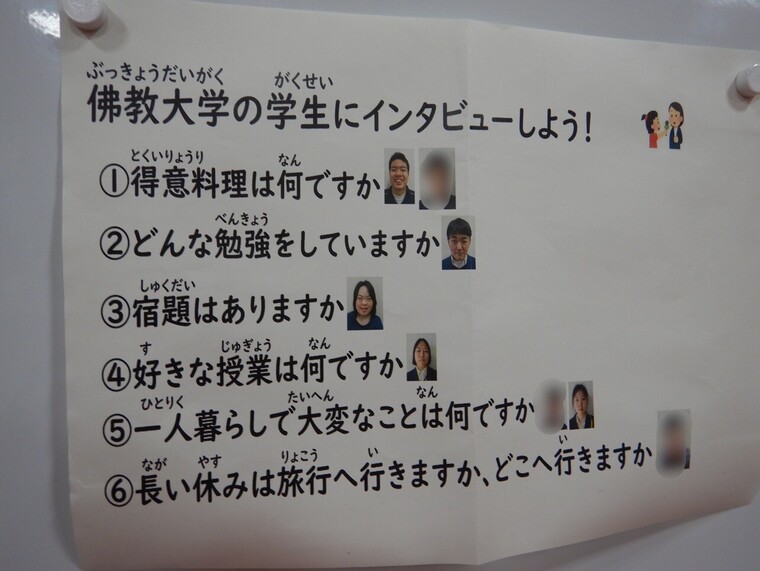 ぶっきょうだいがく がくせい
佛教大学の学生にインタビューしよう！
とくいりょうり なん
①得意料理は何ですか
べんきょう
②どんな勉強をしていますか
しゅくだい
③宿題はありますか
す じゅぎょう なん
④好きな授業は何ですか
ひとりく たいへん なん
⑤一人暮らしで大変なことは何ですか
なが やす りょこう い い
⑥長い休みは旅行へ行きますか、どこへ行きますか